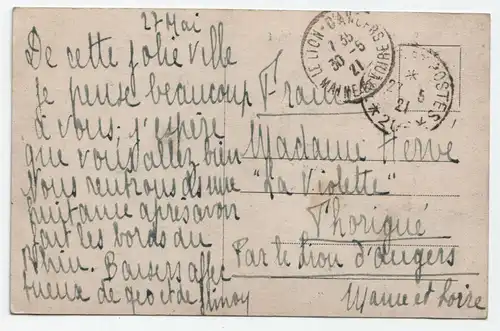 27 Mai
De cette jolie ville
je pense beaucoup
à vous. j'espère
que vous allez bien
Nous rentrons d'une
huitaine après avoir
fait les bords du
Rhin. Baisers affec
tueux de geo et de
France
Madame Hervé
"La Violette"
Thorigné
Par le Lion d'angers
Maine et Loire
LE LION-D'ANGERS
7 35
30 -5
21
MAINE ET LOIRE
POSTES
*
27 5
21